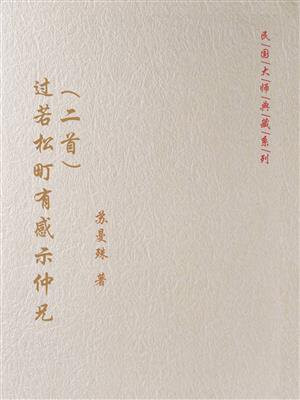 民|国|大|师|典|藏|系|列
苏曼殊 著
(二首)
过若松町有感示仲兄